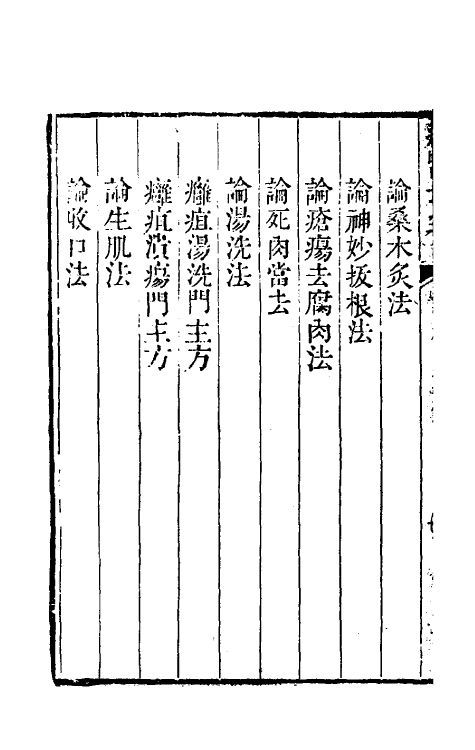 論桑木炙法
論神妙拔根法
論瘡瘍去腐肉法
論死肉當去
論湯洗法
癰疽湯洗門主方
癰疽潰瘍門主方
論生肌法
論收口法